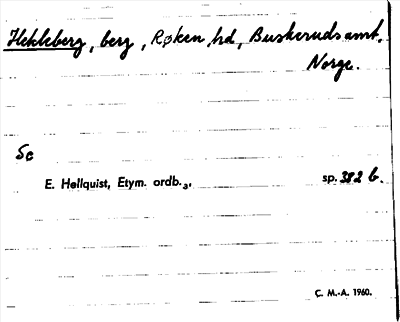 Hekleberg, berg, Røken hd, Buskeruds amt,
Norge.
Se
E. Hellquist, Etym. ordb.₃, sp. 382 b.
C. M.-A. 1960.